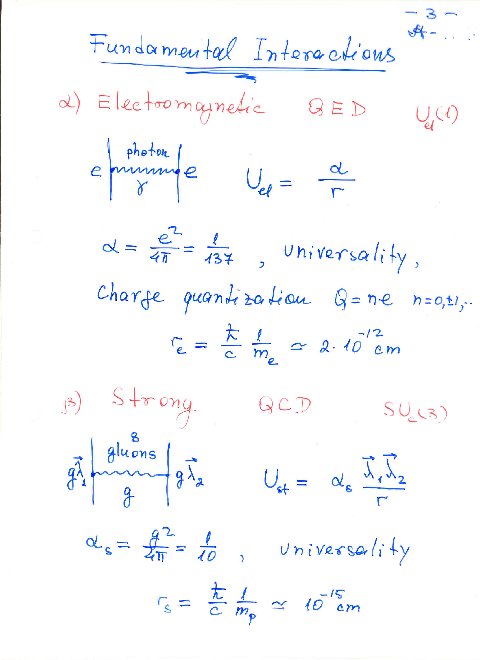 - 3 -
Fundamental Interactions
α) Electromagnetic QED U_el(1)
photon
e γ e U_el = α/r
α = e²/4π = 1/137 , universality,
Charge quantization Q = ne n=0,±1,..
r_e = ħ/c 1/m_e ≃ 2·10⁻¹² cm
β) Strong. QCD SU_c(3)
8
gluons
gλ⃗₁ g gλ⃗₂ U_st = α_s λ⃗₁λ⃗₂/r
α_s = g²/4π = 1/10 , universality
r_s = ħ/c 1/m_p ≃ 10⁻¹⁵ cm